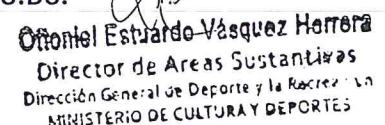 Otoniel Estuardo Vásquez Herrera
Director de Areas Sustantivas
Dirección General de Deporte y la Recrea
MINISTERIO DE CULTURA Y DEPORTES